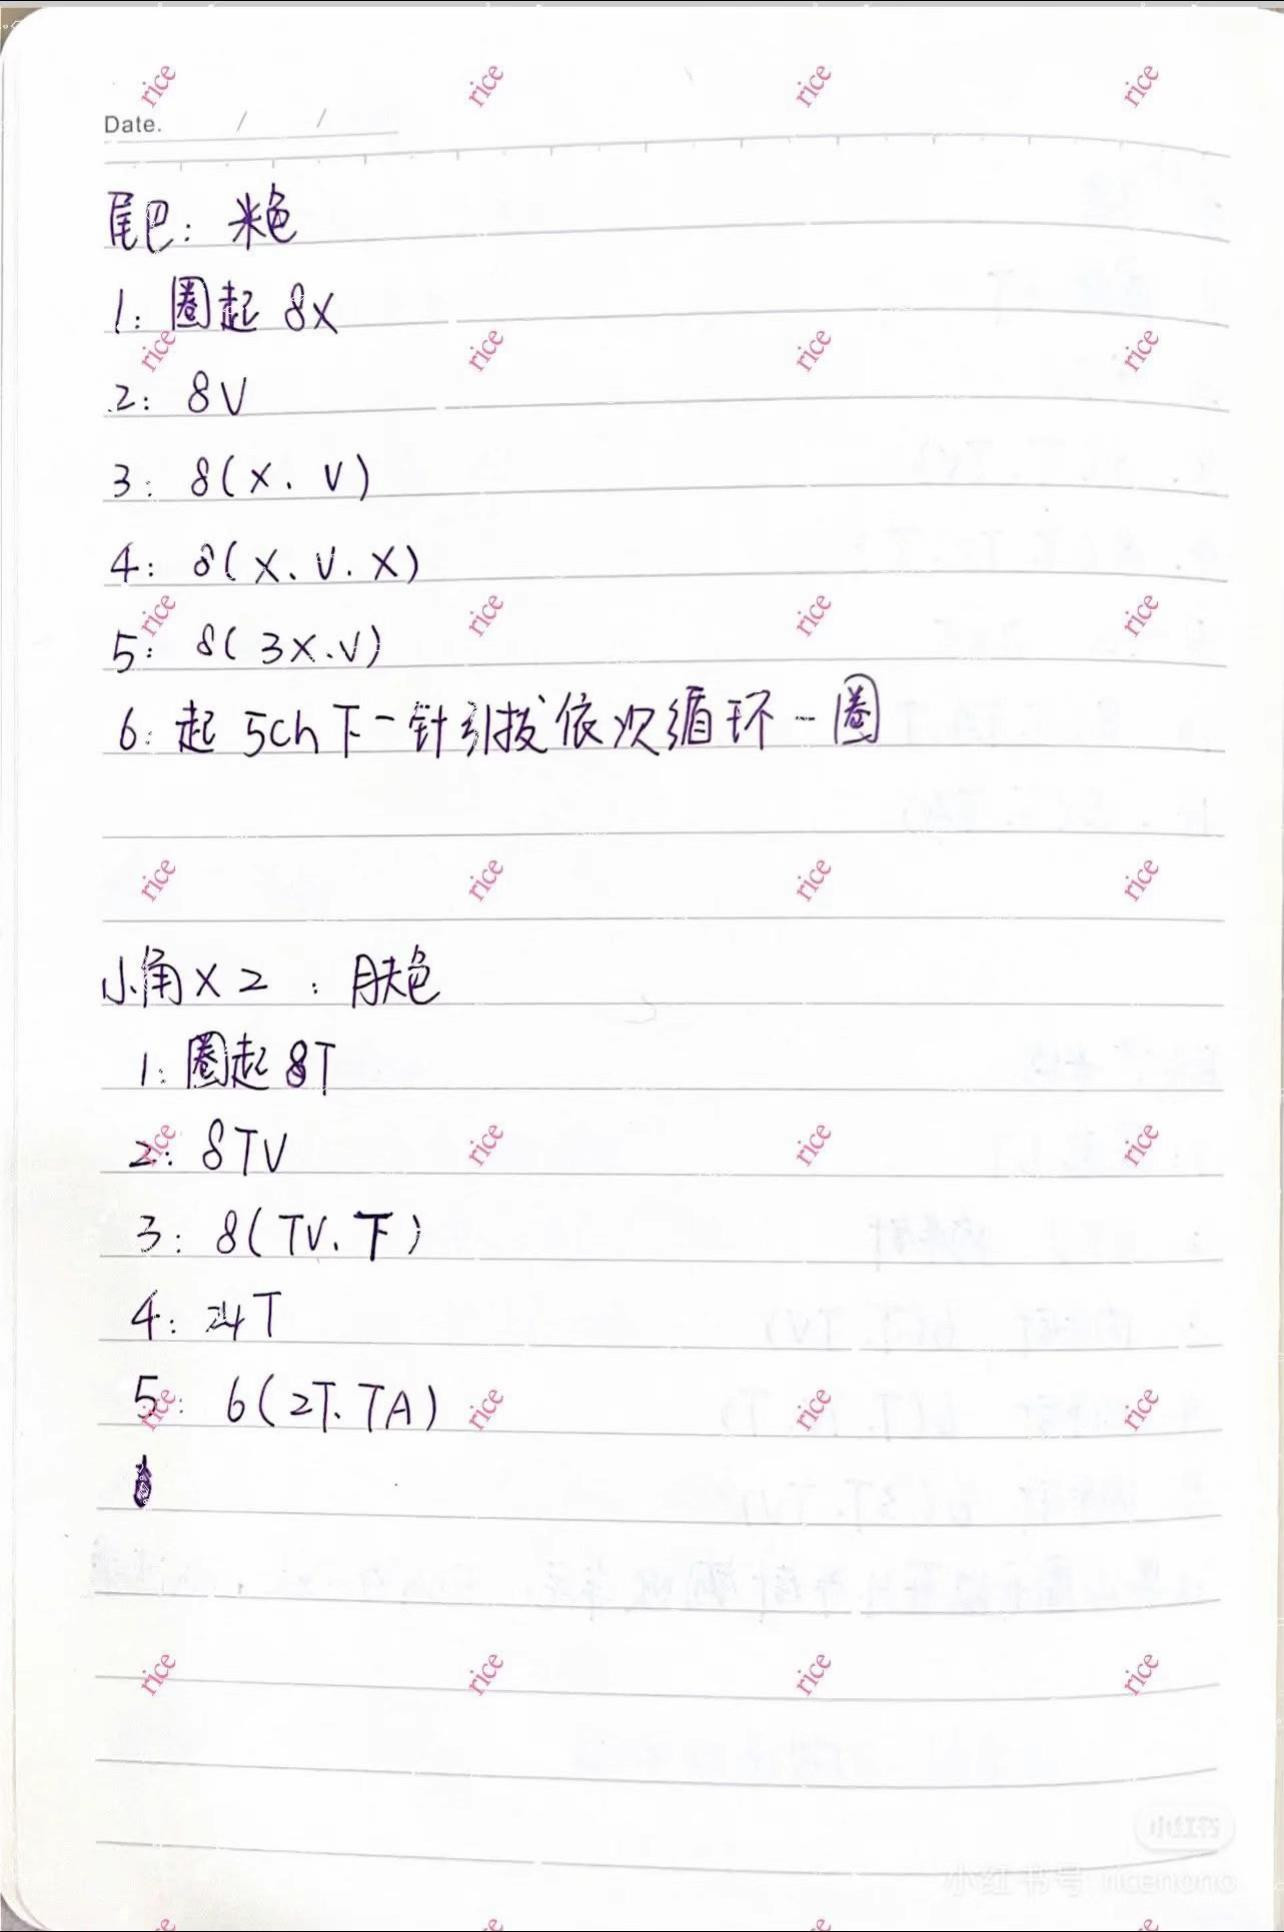 rice rice rice rice
Date. / /
尾巴: 米色
1: 圈起 8X
rice rice rice rice
2: 8V
3: 8(X、V)
4: 8(X、V、X)
rice rice rice rice
5: 8(3X、V)
6: 起 5ch 下一针引拔依次循环一圈
rice rice rice rice
小角X2 : 肤色
1: 圈起 8T
rice rice rice rice
2: 8TV
3: 8(TV、下)
4: 24T
5: 6(2T、TA)
rice rice rice rice
rice rice rice rice
小红书
小红书号
rice rice rice rice